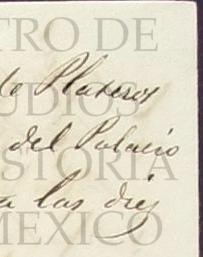 TRO DE
de Plateros
UDIOS
del Palacio
STORIA
a las diez
MEXICO